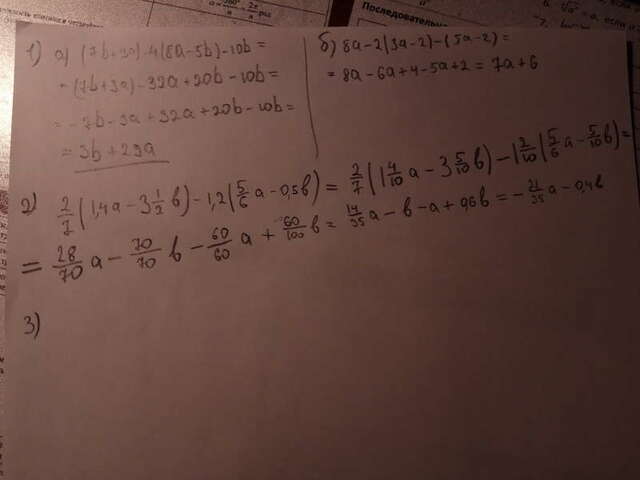 Последовательнос
1) а) (7b+3a)-4(8a-5b)-10b =
= -(7b+3a)-32a+20b-10b =
= -7b-3a+32a+20b-10b =
= 3b+29a
б) 8a-2(3a-2)-(5a-2) =
= 8a-6a+4-5a+2 = 7a+6
2) 2/7 (1,4a - 3 1/2 b) - 1,2 (5/6 a - 0,5b) = 2/7 (1 4/10 a - 3 5/10 b) - 1 2/10 (5/6 a - 5/10 b) =
= 28/70 a - 70/70 b - 60/60 a + 60/100 b = 14/35 a - b - a + 0,6b = - 21/35 a - 0,4b
3)